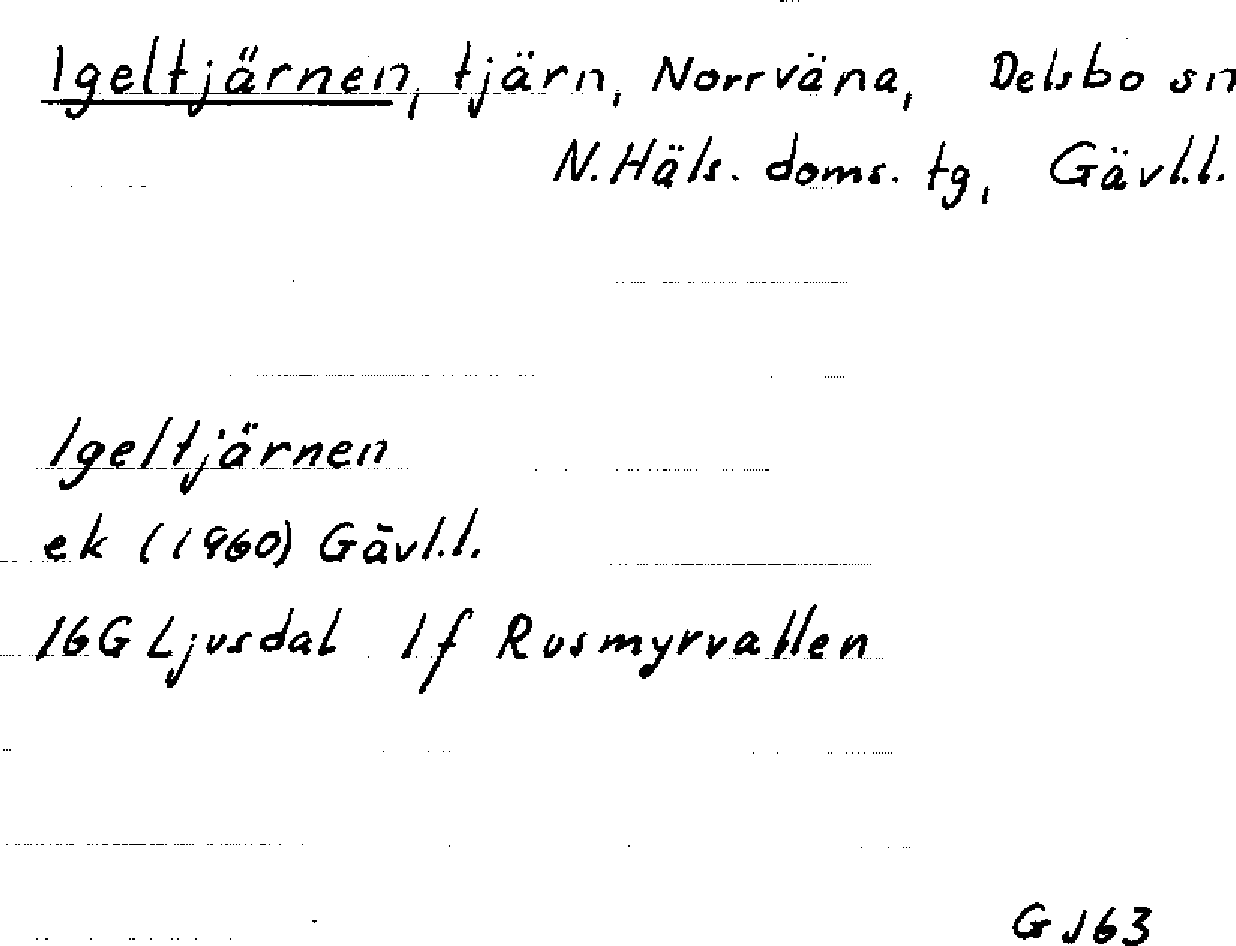 Igeltjärnen, tjärn, Norrväna, Delsbo sn
N. Häls. doms. tg, Gävl.l.
Igeltjärnen
ek (1960) Gävl.l.
16G Ljusdal 1f Rusmyrvallen
GJ63